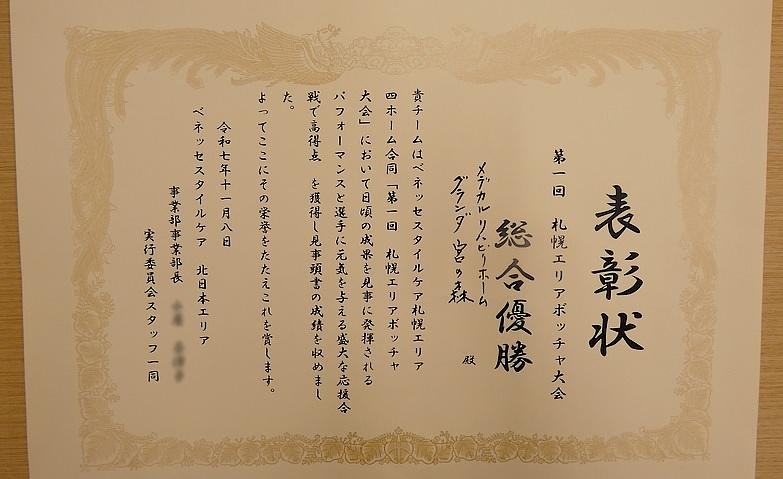 表彰状
第一回　札幌エリアボッチャ大会
総合優勝
メデカルリハビリホーム
グランダ宮の森
殿
貴チームはベネッセスタイルケア札幌エリア
四ホーム合同「第一回　札幌エリアボッチャ
大会」において日頃の成果を見事に発揮される
パフォーマンスと選手に元気を与える盛大な応援合
戦で高得点　を獲得し見事頭書の成績を収めまし
た。
よってここにその栄誉をたたえこれを賞します。
令和七年十一月八日
ベネッセスタイルケア　北日本エリア
事業部事業部長
実行委員会スタッフ一同